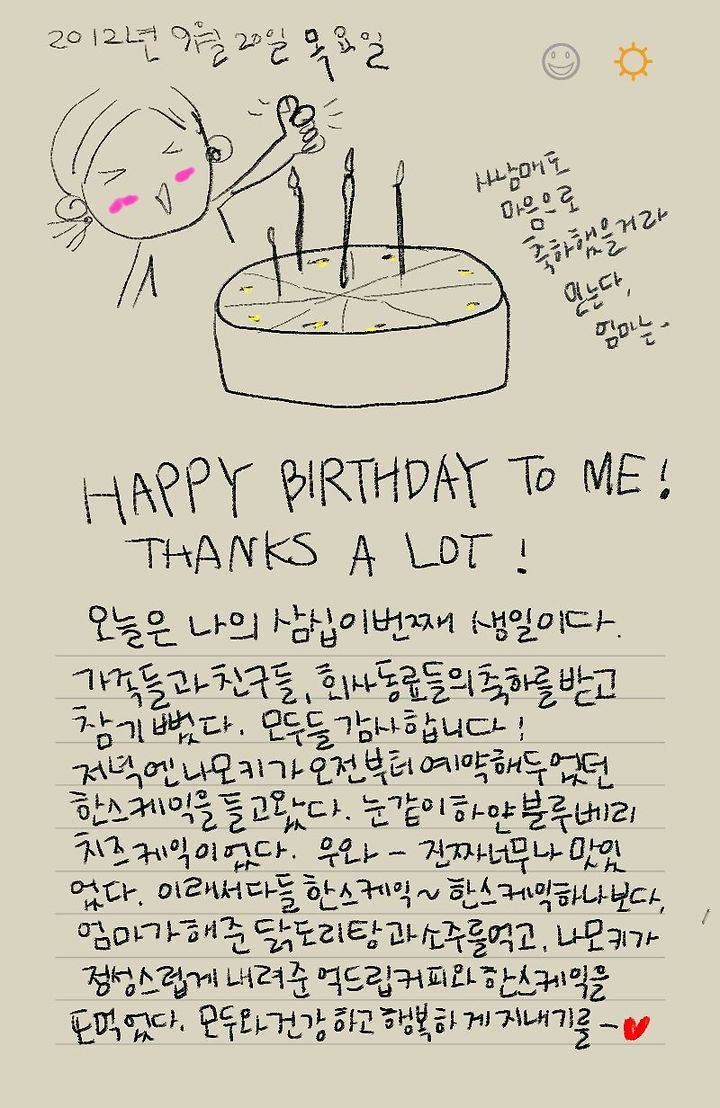 2012년 9월 20일 목요일
사남매도
마음으로
축하했을거라
믿는다,
엄마는-
HAPPY BIRTHDAY TO ME!
THANKS A LOT!
오늘은 나의 삼십이번째 생일이다.
가족들과 친구들, 회사동료들의 축하를 받고
참 기뻤다. 모두들 감사합니다!
저녁엔 나모키가 오전부터 예약해두었던
한스케익을 들고왔다. 눈같이 하얀 블루베리
치즈케익이었다. 우와- 진짜너무나 맛있
었다. 이래서 다들 한스케익~ 한스케익하나보다,
엄마가 해준 닭도리탕과 소주를먹고, 나모키가
정성스럽게 내려준 억드립커피와 한스케익을
또먹었다. 모두와 건강하고 행복하게 지내기를-